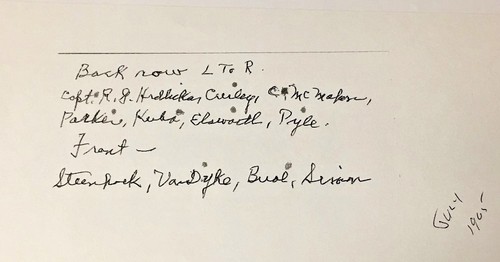 Back row L To R.
Capt. R. J. Hrdlicka, Curley, C. McMahon,
Parker, Kuba, Elsworth, Pyle.
Front —
Steenhock, VanDyke, Buol, Simon
July